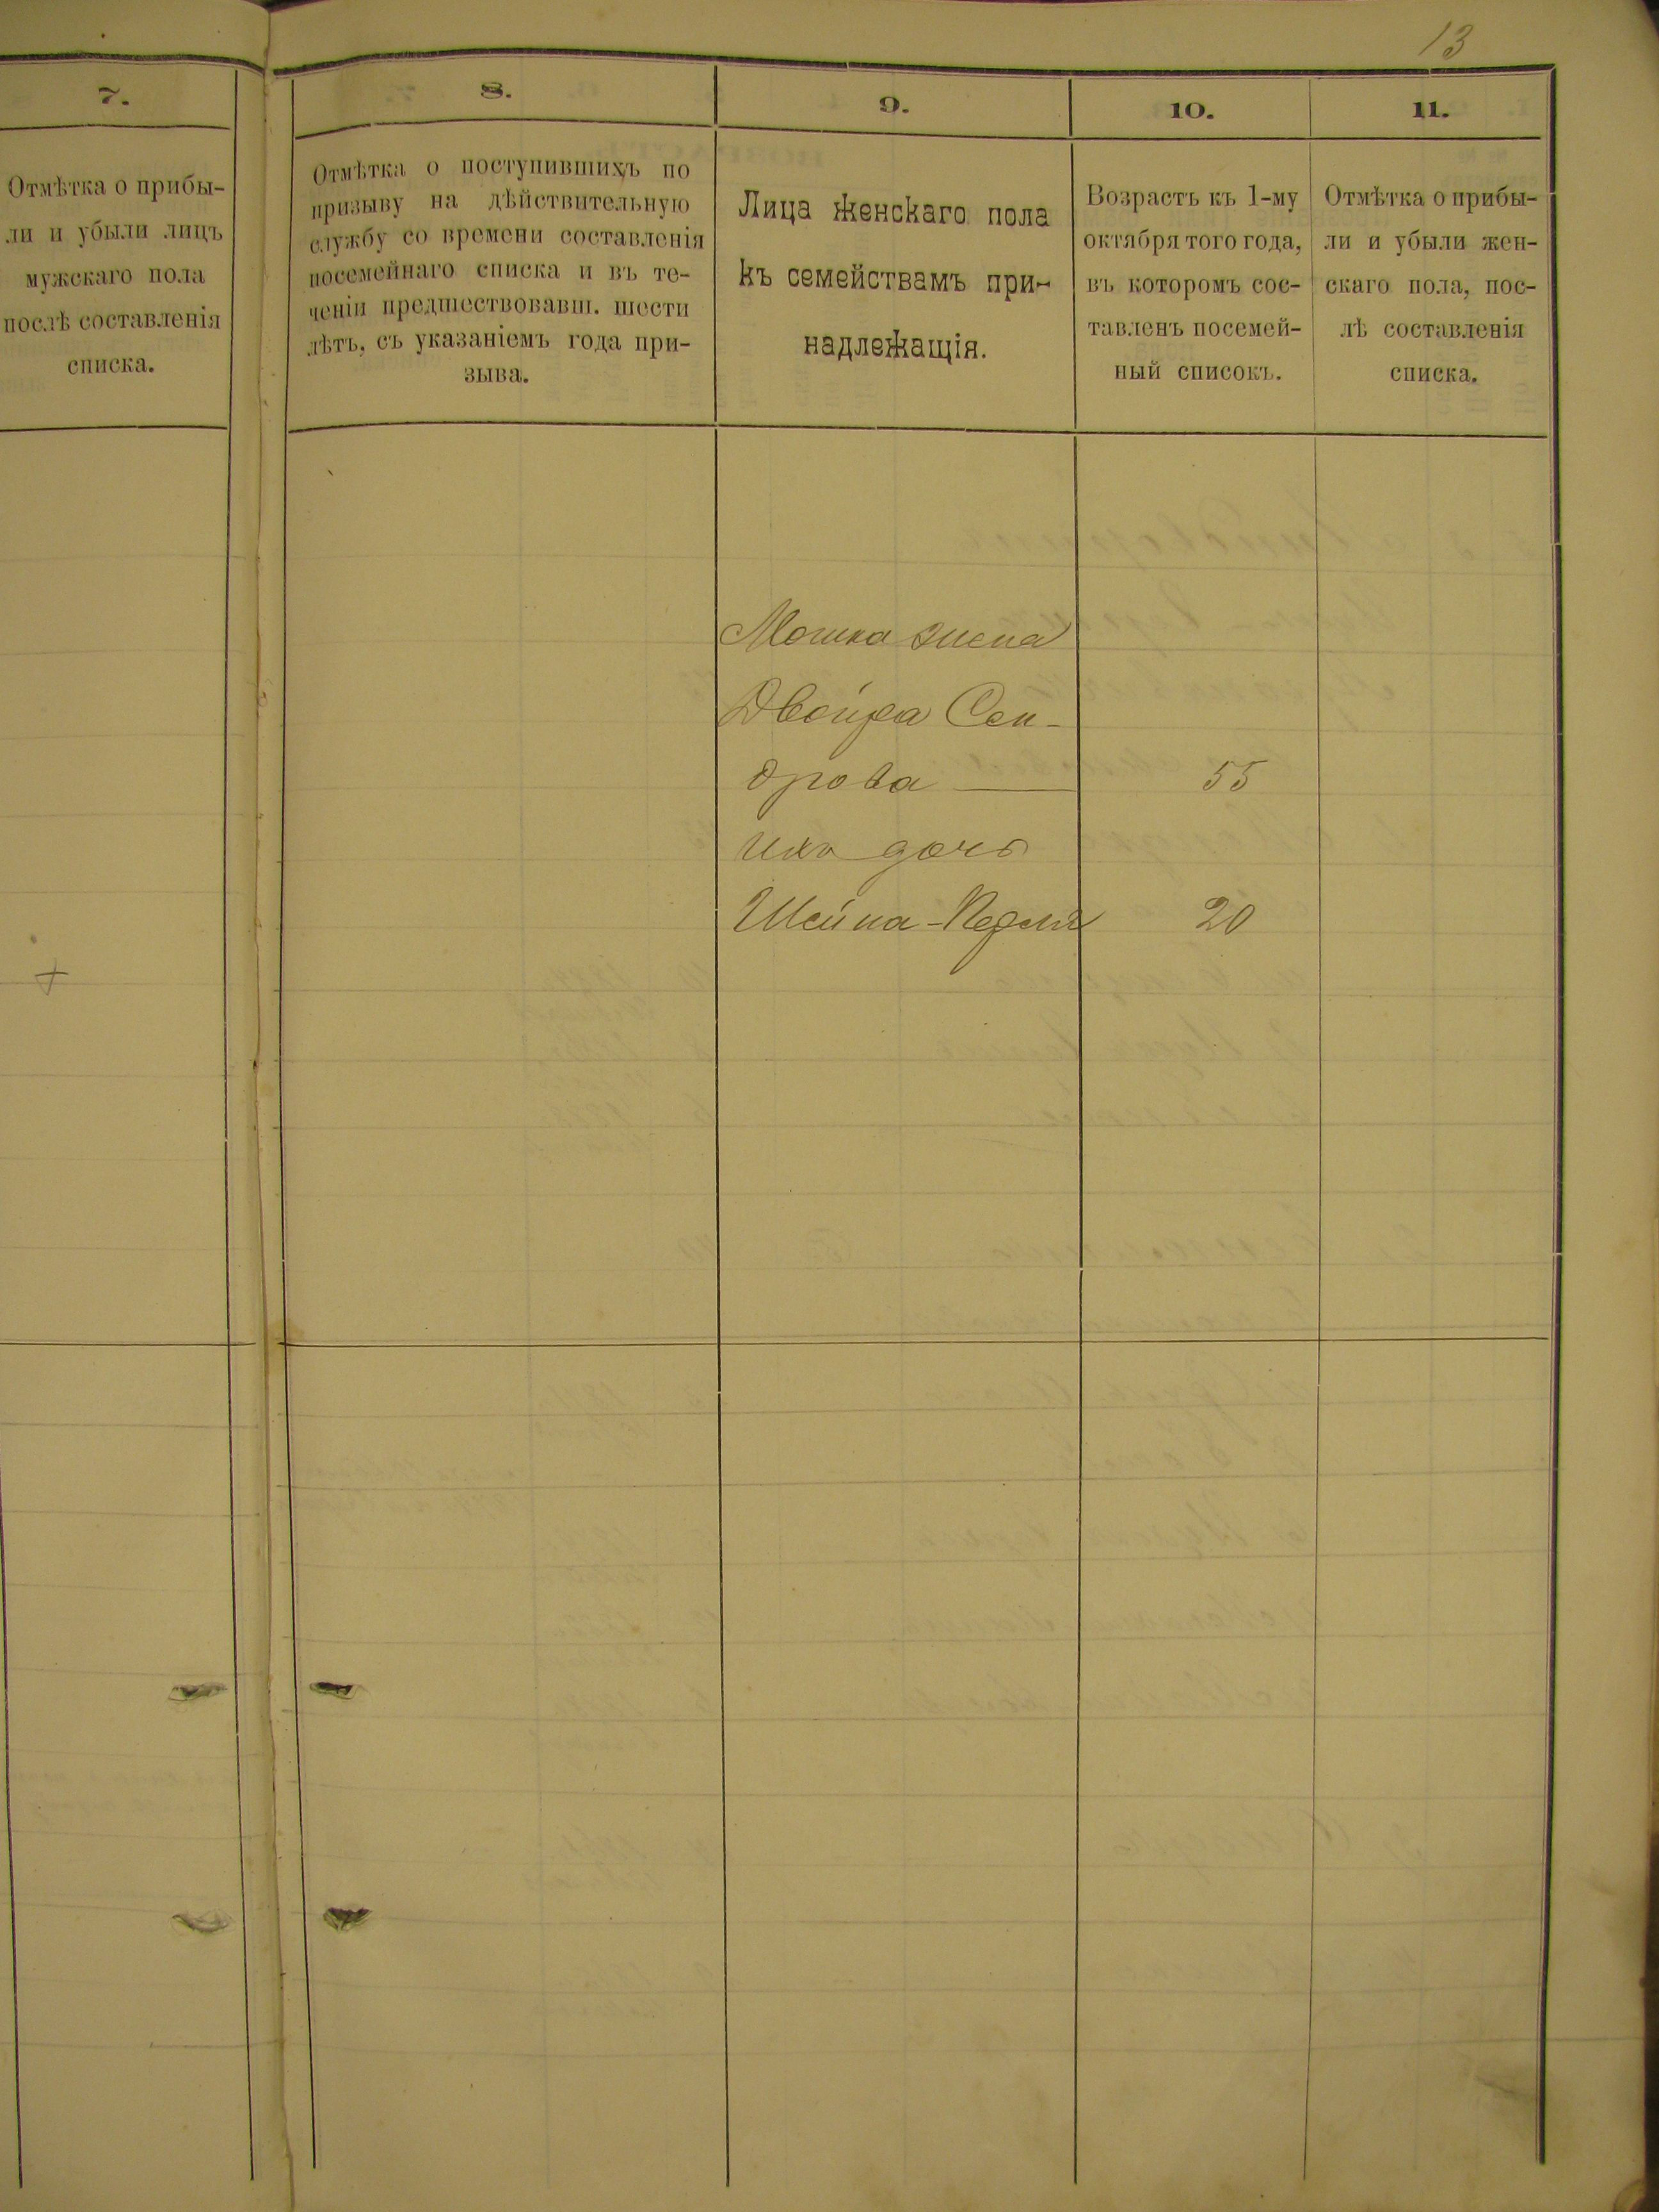 13
7.
Отмѣтка о прибы-
ли и убыли лицъ
мужскаго пола
послѣ составленія
списка.
8.
Отмѣтка о поступившихъ по
призыву на дѣйствительную
службу со времени составленія
посемейнаго списка и въ те-
ченіи предшествовавш. шести
лѣтъ, съ указаніемъ года при-
зыва.
9.
Лица женскаго пола
къ семействамъ при-
надлежащія.
10.
Возрастъ къ 1-му
октября того года,
въ которомъ сос-
тавленъ посемей-
ный списокъ.
11.
Отмѣтка о прибы-
ли и убыли жен-
скаго пола, пос-
лѣ составленія
списка.
Мошка жена
Двойра Сен-
дрова 55
ихъ дочь
Шейна-Перля 20
+